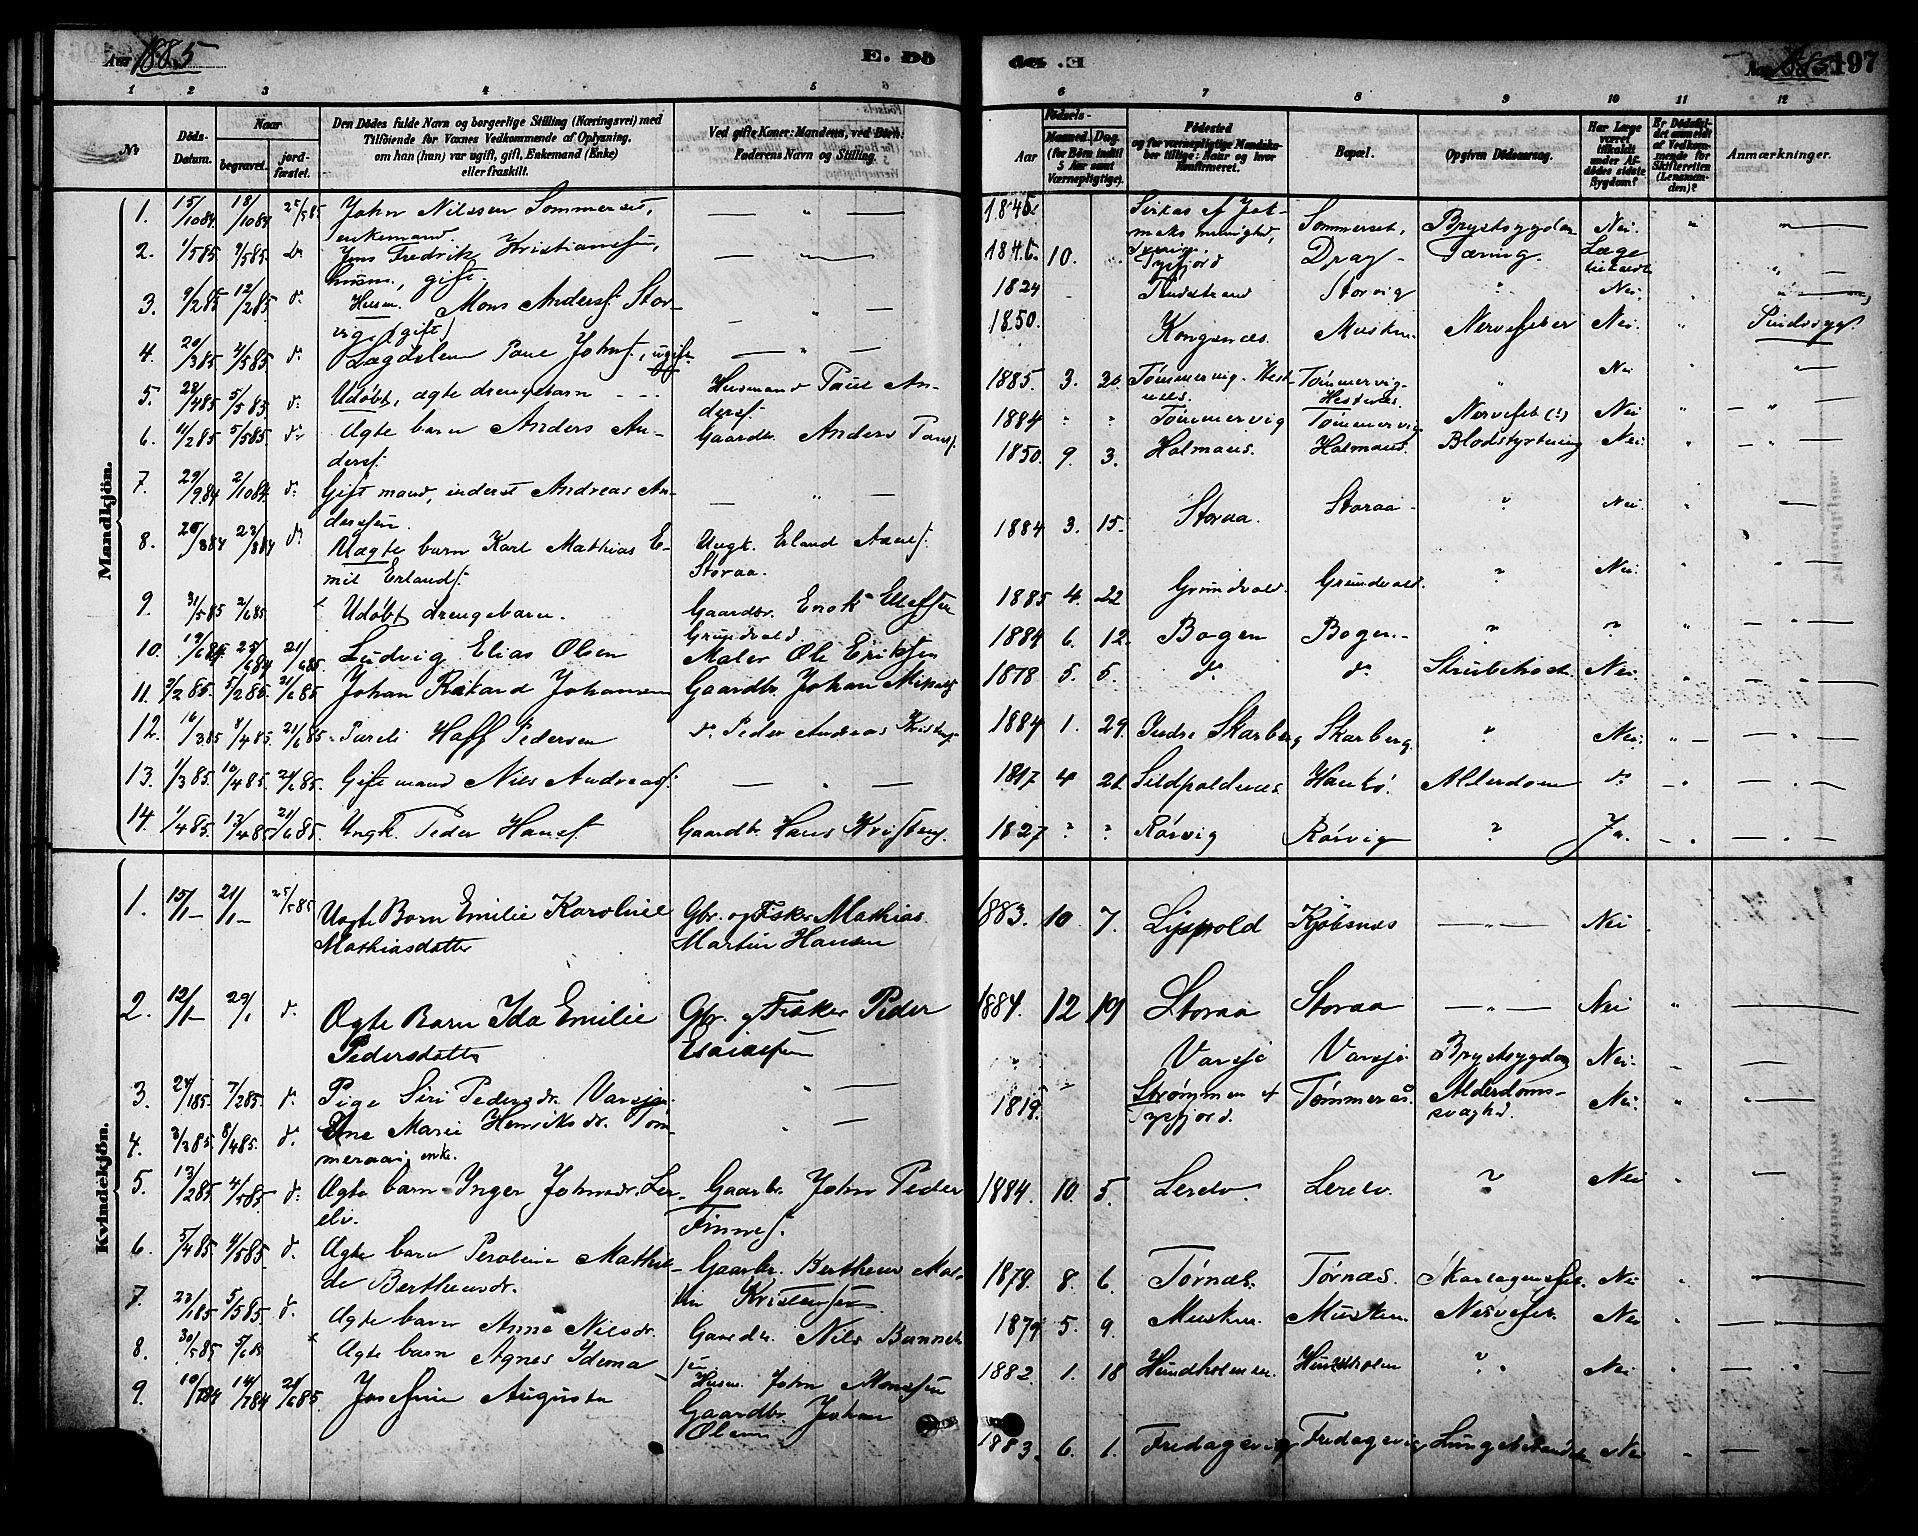 Aar 1885
E. Dö
de. E
Aar 1885
197
1 2 3 4 5 6
6 7 8 9 10 11 12
No
Döds-Datum.
Naar
begravet.
jord-fæstet.
Den Dödes fulde Navn og borgerlige Stilling (Næringsvei) med
Tilföiende for Voxnes Vedkommende af Oplysning,
om han (hun) var ugift, gift, Enkemand (Enke)
eller fraskilt.
Ved gifte Koner: Mandens, ved Börn:
Faderens Navn og Stilling.
Födsels-
Aar
Maaned. Dag.
(for Börn indtil
5 Aar samt
Værnepligtige).
Födested
og for værnepligtige Mandskaber tillige: Naar og hvor
konfirmeret.
Bopæl.
Opgiven Dödsaarsag.
Har Læge
været
tilkaldt
under Afdödes sidste
Sygdom?
Er Dödsfaldet anmeldt
af Vedkommende for
Skifteretten
(Lensmanden)?
Anmærkninger.
Mandkjön.
1. 15/1084 18/1084 25/585 John Nilssen Sommerset, enkemand — " — 1846 Sommerset, Brystsygdom Nei. "
2. 1/585 9/585 do Jens Fredrik Kristiansen, husm., gift — " — 1846. 10. Tysfjord Drag Tæring. Læge tilkaldt
3. 9/285 12/285 do Husm. Mons Anders. Storvig, (gift) — " — 1824 Storvig " Nei.
4. 20/385 4/585 do Lægdslem Paul Johns., ugift — " — 1850. Kongsnæs. Musken Nervefeber Nei "
5. 28/485 5/585 do Udøbt, ægte drengebarn Husmand Paul Anders. 1885 3. 20. Tømmervig. Hestnæs. Tømmervig-Hestnæs. " Nei
6. 11/285 5/585 do Ægte barn Anders Anders. Gaardbr. Anders Pauls. 1884 " " Tømmervig Tømmervig. Nervefeb (?) Nei
7. 29/984 2/1084 do Gift mand, inderst Andreas Andersen. — " — 1850. 9. 3. Holmens. Holmens. Blodstyrtning Nei
8. 20/884 23/884 do Uægte barn Karl Mathias Emil Erlands. Ungk. Erland Storaa. 1884 3. 15. Storaa. Storaa. ? Nei.
9. 31/585 2/685 Udøbt drengebarn. Gaardbr. Enok Ellefsen Grundvold 1885 4. 22 Grundvold. Grundvold. ? Nei.
10. 19/684 25/684 21/685. Ludvig Elias Olsen Maler Ole Eriksen 1884 6. 12. Bogen Bogen. ? ?
11. 2/285. 5/285. 21/685 Johan Rikard Johansen Gaardbr. Johan Mikals. 1878 5. 5. do do Strubehoste. Nei.
12. 16/385 8/485. 21/685. Pareli Haff Pedersen do Peder Andreas 1884 1. 29. Indre Skarberg Skarberg. ? Nei.
13. 1/385. 10/485. 21/685. Gift mand Nils Andreas. — " — 1817 4 21. Sildpoldnæs. Haukö. Alderdom do
14. 1/485. 13/485 21/685. Ungk. Peder Hans. Gaardbr. Hans 1827 ? ? Rörvig Rörvig ? Ja.
Kvindekjön.
1. 15/1 – 21/1 – 25/585 Uægte Barn Emilie Karoline Mathiasdatter Gbr. og Fisker Mathias Martin Hansen 1883. 10 7. Kjöbsnæs — " — Nei
2. 12/1 – 29/1 do Ægte Barn Ida Emilie Pedersdatter Gbr. og Fisker Peder Esaiassen 1884. 12 19 Storaa Storaa — " — Nei "
3. 24/185 7/285. do Pige Siri Pedersdr. Varsjö " — " Varsjö Varsjö Brystsygdom Nei.
4. 3/385 8/485. do Ane Marie Henriksdr. Tømmeraas, enke. " — 1819. Strømmen i Tysfjord. Tømmerås. Alderdomssvaghed. Nei.
5. 13/285 4/585 do Ægte barn Inger Johnsdr. Lerelv. Gaardbr. John Peder Finnes. 1884. 10. 5 Lerelv. Lerelv. ? Nei
6. 5/485 4/585. do Ægte barn Peroline Mathilde Bertheusdr. Gaardbr. Bertheus Martin Kristensen 1879. 8. 6. Tørnæs. Tørnæs. Skarlagensfeb. Nei
7. 23/185 5/585. do Ægte barn Anna Nilsdr. Gaardbr. Nils 1879 5. 9. Musken. Musken. Nervefeb. Nei
8. 30/585 5/685 Ægte barn Agnes Idema Husm. John Monsen 1882. 1. 18 Hundholmen. Hundholm ? Nei
9. 10/784 14/784 21/685. Josefine Augusta Gaardbr. Johan Olsen 1883. 6. 1. Fredagsvig Fredagsvig Lungebetændelse Nei